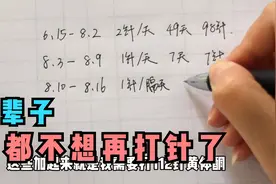 6.15-8.2 2针/天 49天 98针
8.3-8.9 1针/天 7天 7针
8.10-8.16 1针/隔天
辈子
都不想再打针了
这些加起来就是我需要打112针黄体酮